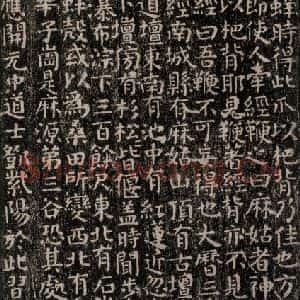 蛘時得此爪以杷背乃佳也方
即使人牽經鞭之曰麻姑者神
以杷背耶見鞭著經背亦不見
經曰吾鞭不可妄得也大曆三
經南城縣有麻姑山頂有古壇
道壇東南有池中有紅蓮近忽
下壇傍有杉松皆偃蓋時聞步
瀑布淙下三百餘尺東北有石
蚌殼或以為桑田所變西北有
華子崗是麻源第三谷恐其處
應開元中道士鄧紫陽於此習